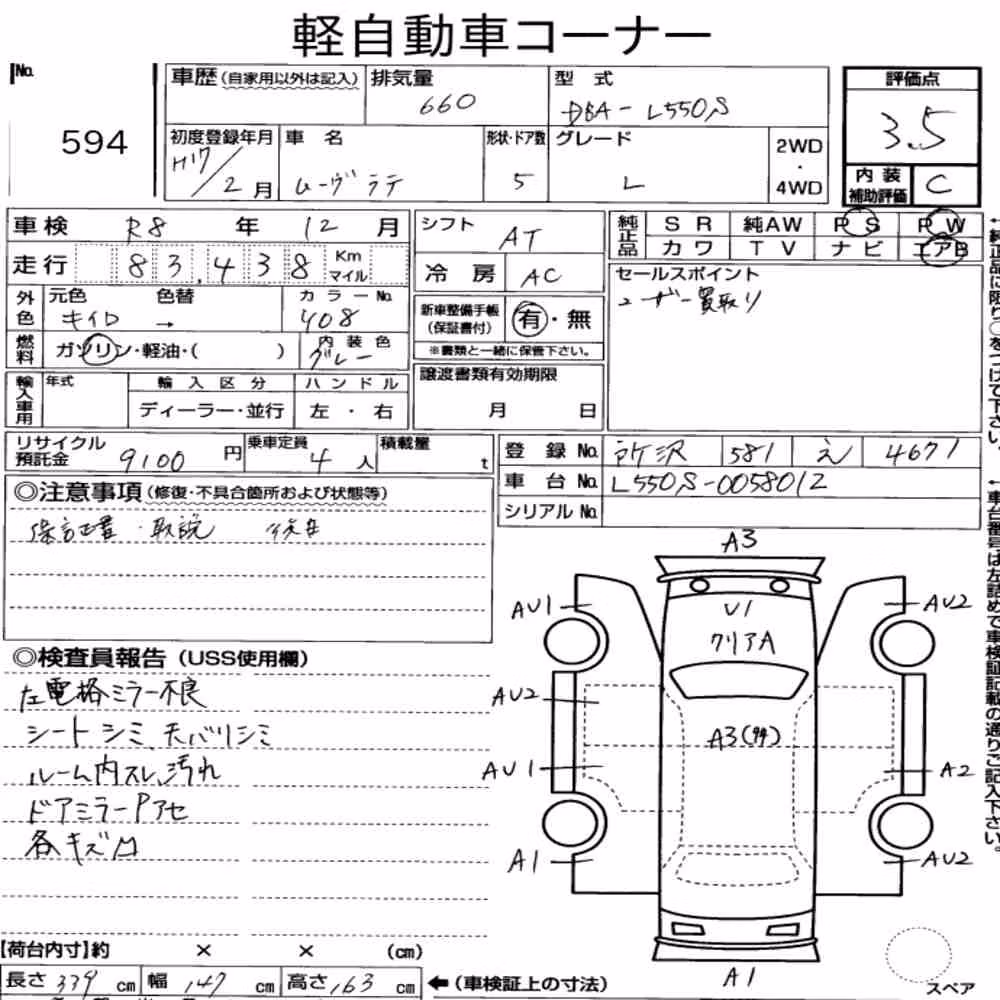 軽自動車コーナー
No. 594
車歴（自家用以外は記入） 排気量 660 型式 DBA-L550S 評価点 3.5
初度登録年月 H17/12月 車名 ムーヴラテ 形状・ドア数 5 グレード L 2WD・4WD 内装補助評価 C
車検 R8年12月 シフト AT 純正品 SR 純AW PS PW
カワ TV ナビ エアB
走行 83,438 Km マイル 冷房 AC セールスポイント
ユーザー買取り
外色 元色 キイロ 色替 → カラーNo. 408 新車整備手帳（保証書付） 有・無
※書類と一緒に保管下さい。
燃料 ガソリン・軽油・（ ） 内装色 グレー
輸入車用 年式 輸入区分 ハンドル 譲渡書類有効期限
ディーラー・並行 左・右 月 日
リサイクル預託金 9100円 乗車定員 4人 積載量 t 登録No. 所沢 581 え 4671
車台No. L550S-0058012
シリアルNo.
◎注意事項（修復・不具合箇所および状態等）
保証書・取説
◎検査員報告（USS使用欄）
左電格ミラー不良
シートシミ、天バリシミ
ルーム内スレ、汚れ
ドアミラーPアセ
各キズ凹
A3
AU1 U1 AU2
クリアA
AU2
A3
AU1 A2
A1 AU2
A1
スペア
【荷台内寸】約 × × (cm)
長さ 339 cm 幅 147 cm 高さ 163 cm ←（車検証上の寸法）
←純正品に限り○をつけて下さい。
←車台番号は左詰めで車検証記載の通りご記入下さい。